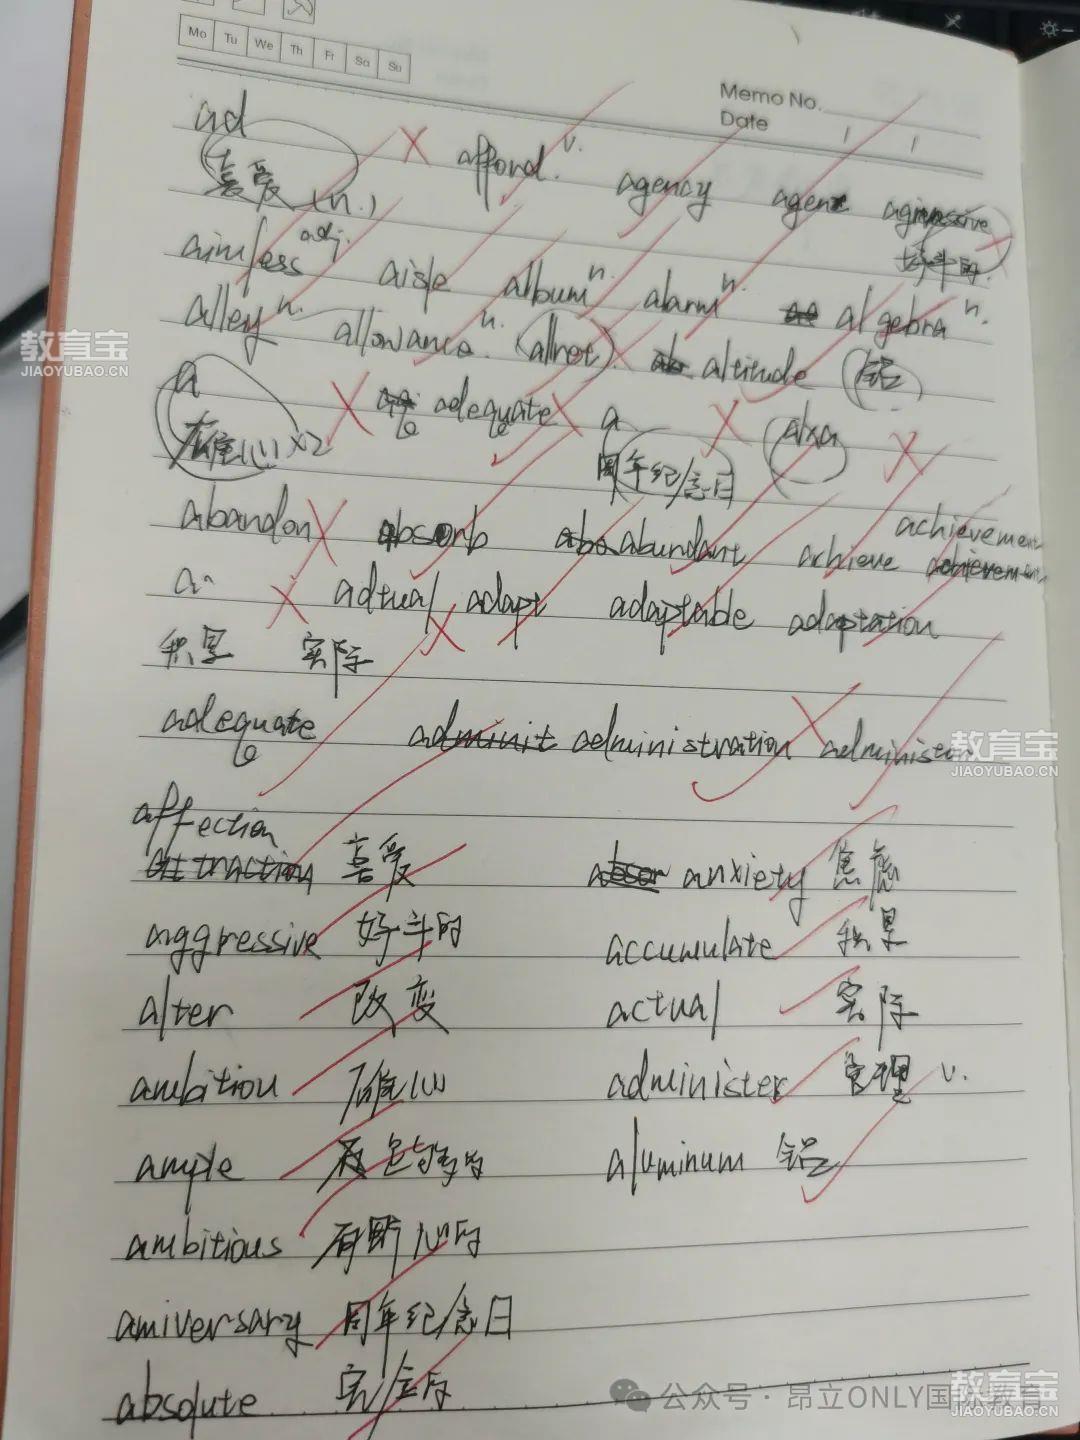 Mo Tu We Th Fr Sa Su
Memo No.
Date / /
ad afford. v. agency agent aggressive
喜爱 (n.) 好斗的.
aimless adj. aisle album n. alarm n. algebra n.
alley n. allowance n. (allot) altitude (铝)
a adequate a
雄心 x2 周年纪念日
abandon absorb abundant achieve achievement
a actual adapt adaptable adaptation
积累 实际
adequate adminit administration administer
affection
attraction 喜爱 anxiety 焦虑
aggressive 好斗的 accumulate 积累
alter 改变 actual 实际
ambition 雄心 administer 管理 v.
ample aluminum 铝
ambitious
anniversary 周年纪念日
absolute 完全的
教育宝
JIAOYUBAO.CN
教育宝
JIAOYUBAO.CN
公众号 · 昂立ONLY国际教育
教育宝
JIAOYUBAO.CN